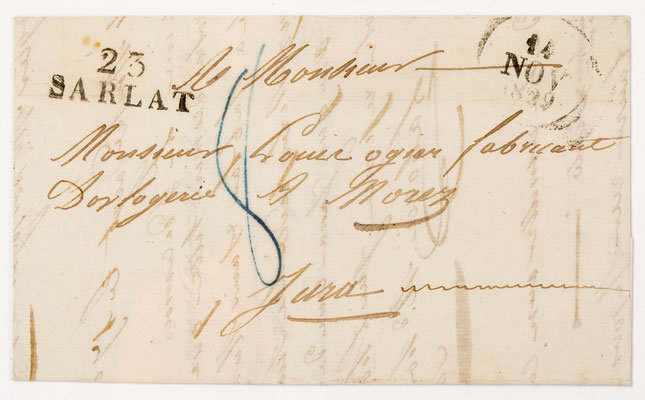 23
SARLAT
14
NOV
1829
A Monsieur
Monsieur Louis ogier fabricant
Dorlogerie A Morez
8
Jura